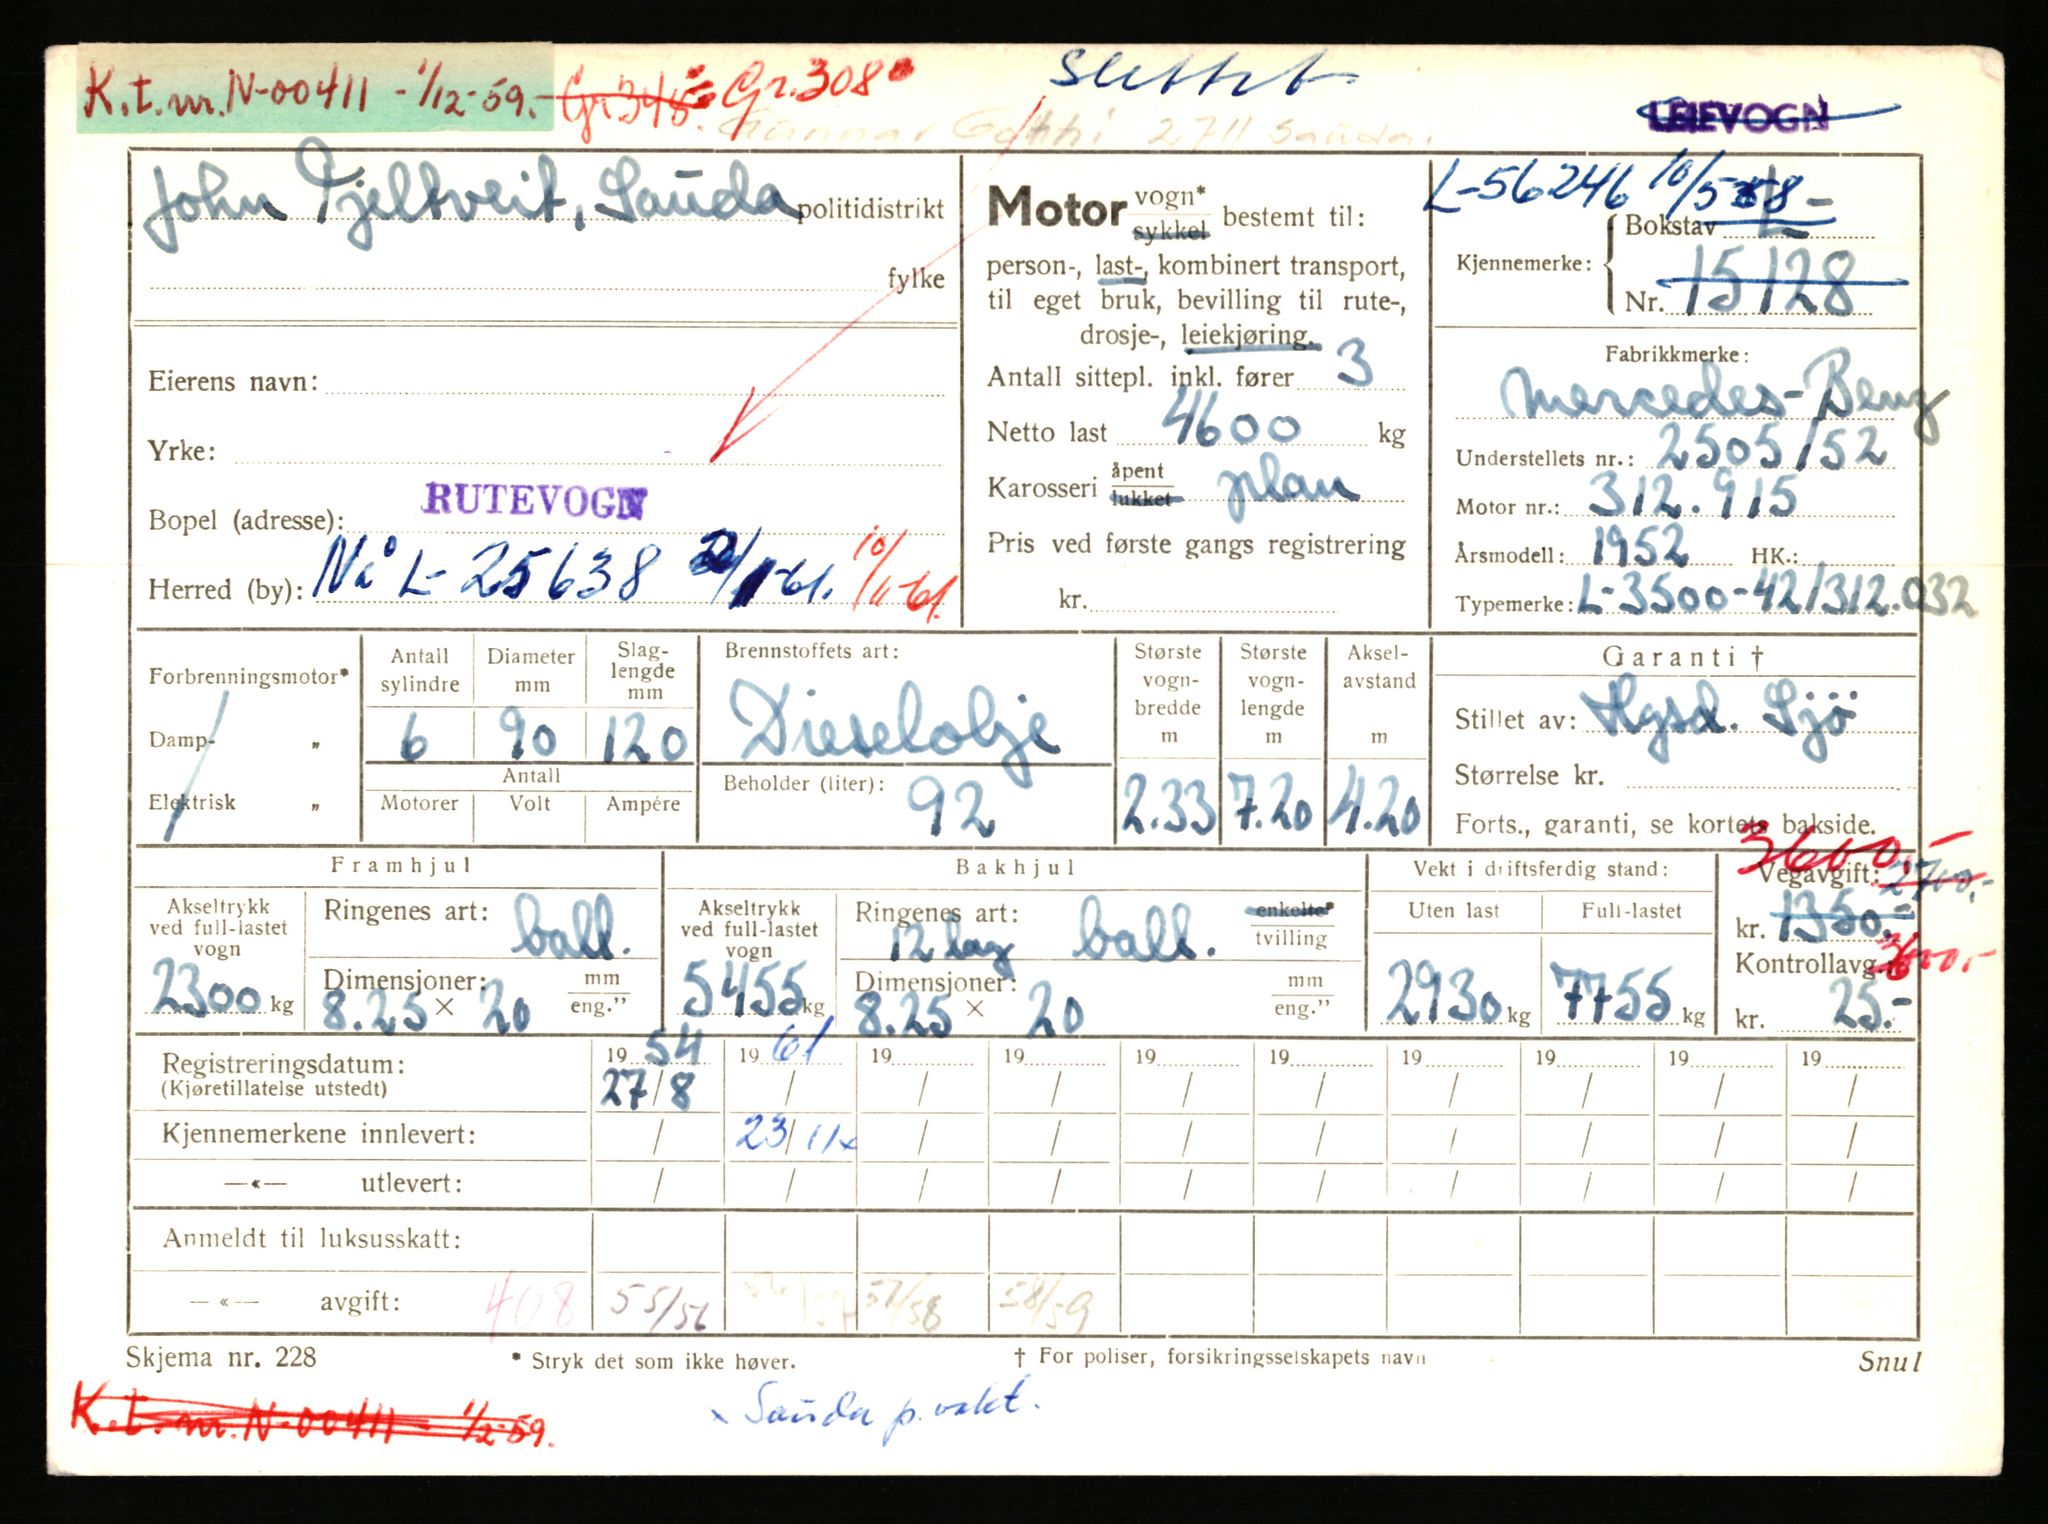 K.t.nr. N-00411 - 1/12-59.- Gr. 348. Gr. 308 Slettet
Gunnar 2711 Sauda.
LEIEVOGN
John Fjeltveit, Sauda politidistrikt
fylke
Eierens navn:
Yrke:
RUTEVOGN
Bopel (adresse):
Herred (by): Nå L-25638 -61. 10/11-61.
Motor vogn* sykkel bestemt til:
person-, last-, kombinert transport,
til eget bruk, bevilling til rute-,
drosje-, leiekjøring.
Antall sittepl. inkl. fører 3
Netto last 4600 kg
Karosseri åpent lukket plan
Pris ved første gangs registrering
kr.
L-56246 10/5-58-
Kjennemerke: Bokstav L
Nr. 15128
Fabrikkmerke:
Mercedes-Benz
Understellets nr.: 2505/52
Motor nr.: 312.915
Årsmodell: 1952 HK.:
Typemerke: L-3500-42/312.032
Forbrenningsmotor*
Damp- „
Elektrisk „
Antall sylindre 6
Diameter mm 90
Slag-lengde mm 120
Antall
Motorer Volt Ampére
Brennstoffets art:
Dieselolje
Beholder (liter): 92
Største vogn-bredde m 2.33
Største vogn-lengde m 7.20
Aksel-avstand m 4.20
Garanti †
Stillet av: Hgsd. Sjö
Størrelse kr.
Forts., garanti, se kortets bakside.
Framhjul
Akseltrykk ved full-lastet vogn 2300 kg
Ringenes art: ball.
Dimensjoner: 8.25 × 20 mm eng."
Bakhjul
Akseltrykk ved full-lastet vogn 5455 kg
Ringenes art: 12 lag ball. enkelte* tvilling
Dimensjoner: 8.25 × 20 mm eng."
Vekt i driftsferdig stand:
Uten last Full-lastet
2930 kg 7755 kg
3600.-
Vegavgift: 2700.-
kr. 1350.-
Kontrollavg. 3600.-
kr. 25.-
Registreringsdatum: 19 54 19 61 19 19 19 19 19 19 19 19
(Kjøretillatelse utstedt) 27/8 / / / / / / / / /
Kjennemerkene innlevert: / 23/11x / / / / / / / /
—«— utlevert: / / / / / / / / / /
Anmeldt til luksusskatt:
—«— avgift: 408 55/56 56/57 57/58 58/59
Skjema nr. 228 * Stryk det som ikke høver. † For poliser, forsikringsselskapets navn Snul
K.t.nr. N-00411 - 1/12-59.
x Sauda p.vakt.